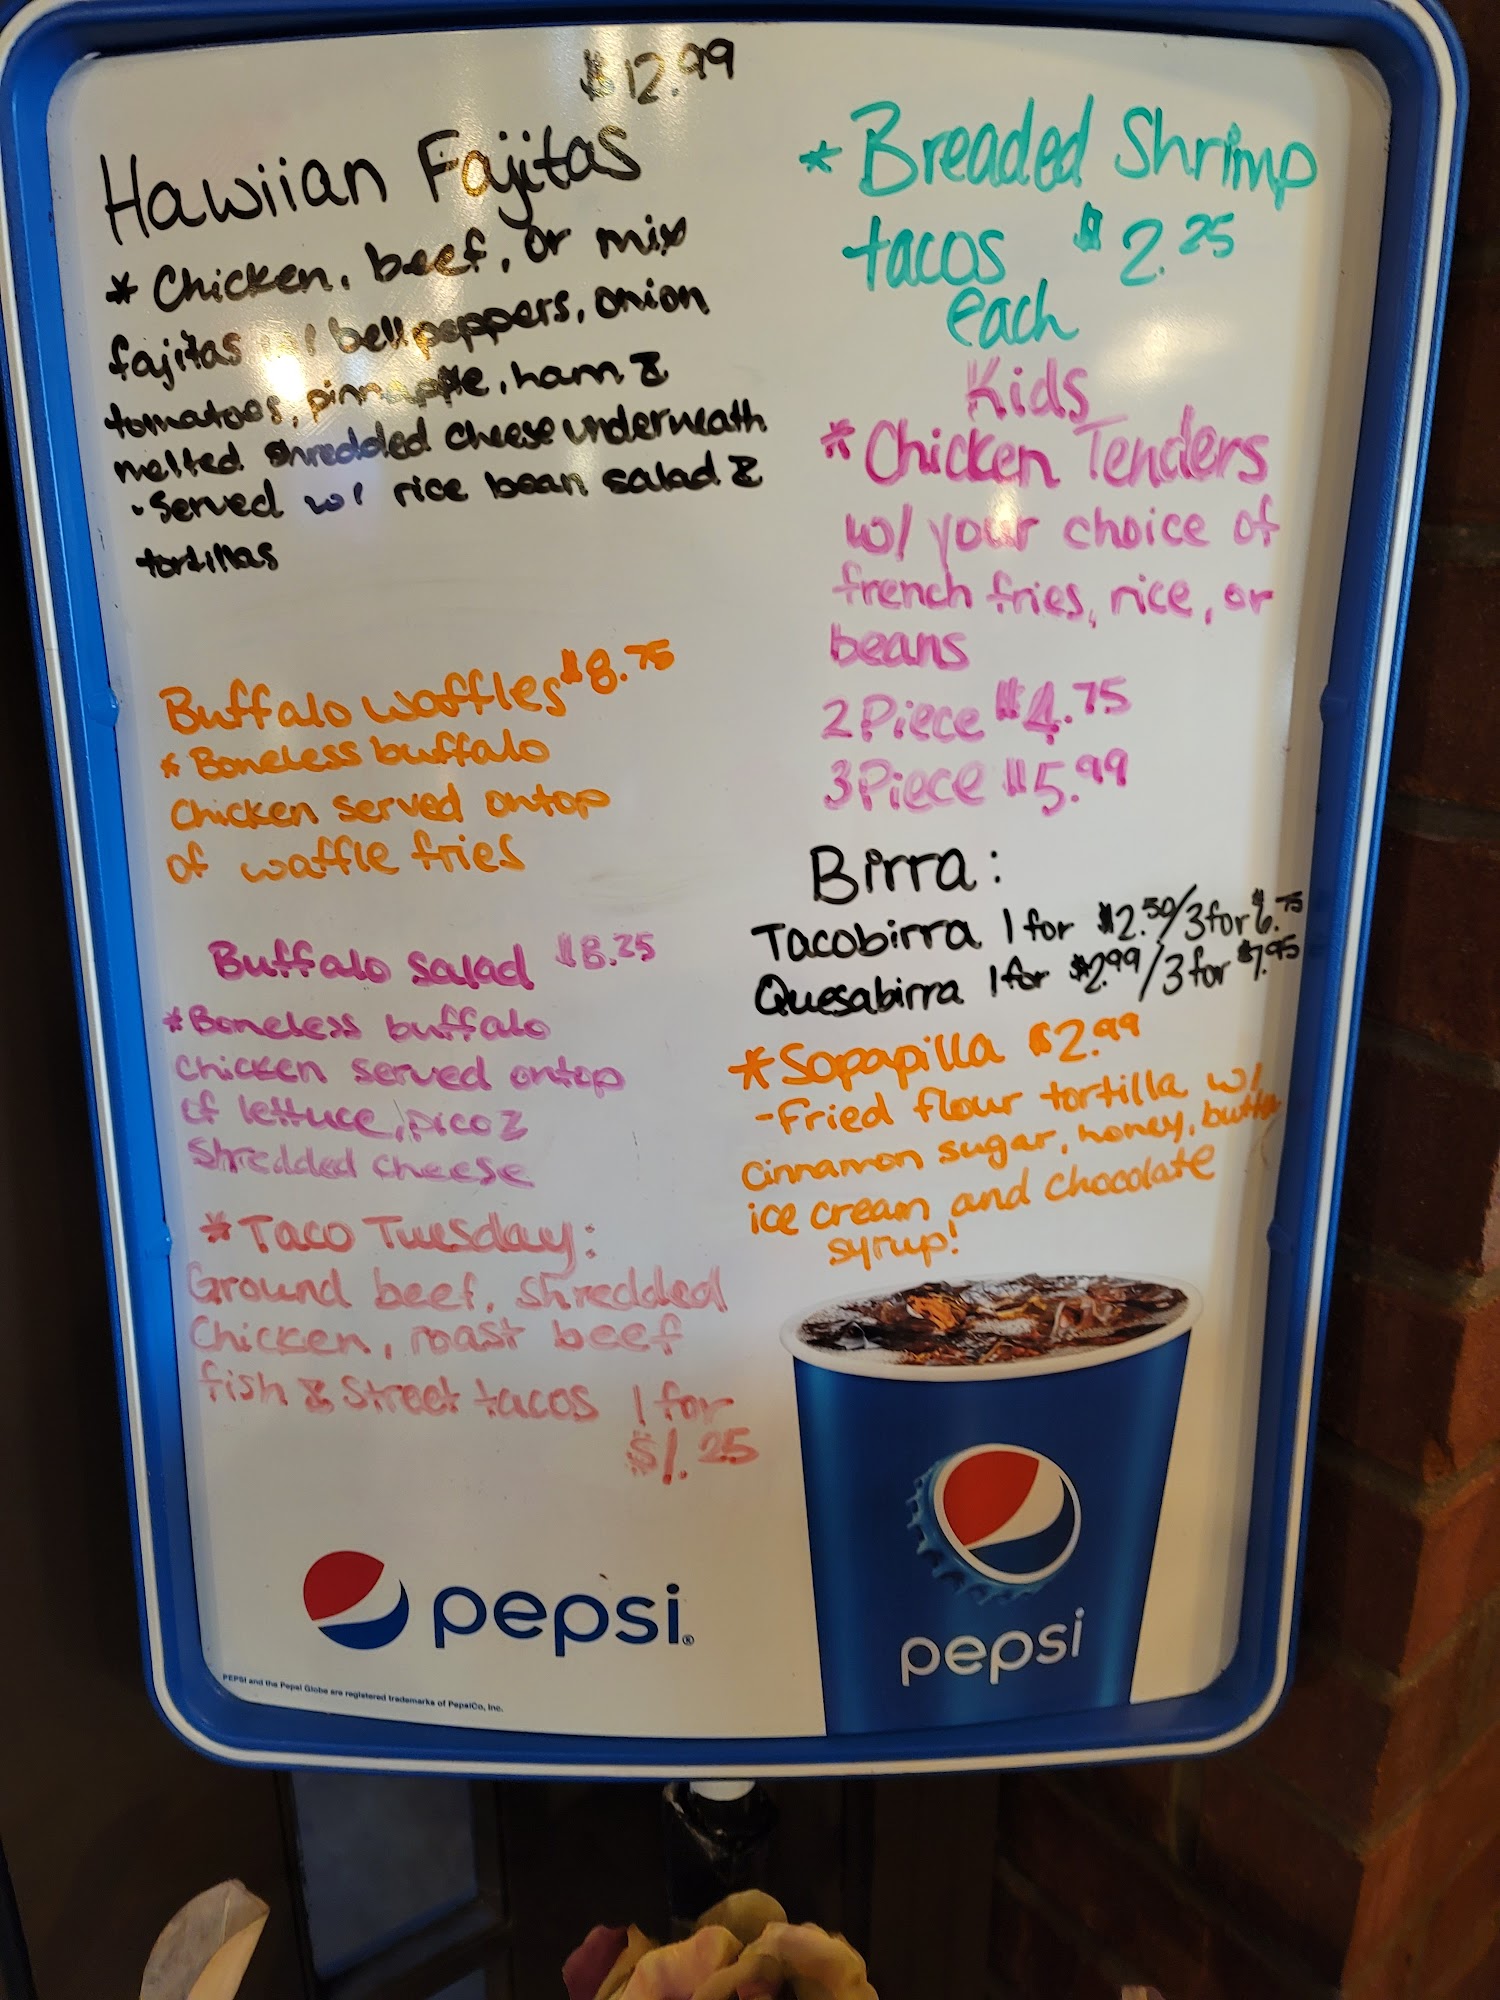 $12.99
Hawiian Fajitas
* Chicken, beef, or mix
fajitas w/ bell peppers, onion
tomatoes, pinnapple, ham &
melted shredded cheese underneath
·Served w/ rice bean salad &
tortillas
Buffalo waffles $8.75
* Boneless buffalo
Chicken served ontop
of waffle fries
Buffalo salad $8.25
*Boneless buffalo
Chicken served ontop
of lettuce, pico &
Shredded cheese
*Taco Tuesday:
Ground beef, shredded
Chicken, roast beef
fish & Street tacos 1 for
$1.25
* Breaded Shrimp
tacos $2.25
each
Kids
*Chicken Tenders
w/ your choice of
french fries, rice, or
beans
2 Piece $4.75
3 Piece $5.99
Birra:
Tacobirra 1 for $2.50/3 for $6.75
Quesabirra 1 for $2.99/3 for $7.95
*Sopapilla $2.99
-Fried flour tortilla w/
Cinnamon sugar, honey, butter
ice cream and chocolate
syrup!
pepsi®
PEPSI and the Pepsi Globe are registered trademarks of PepsiCo, Inc.
pepsi